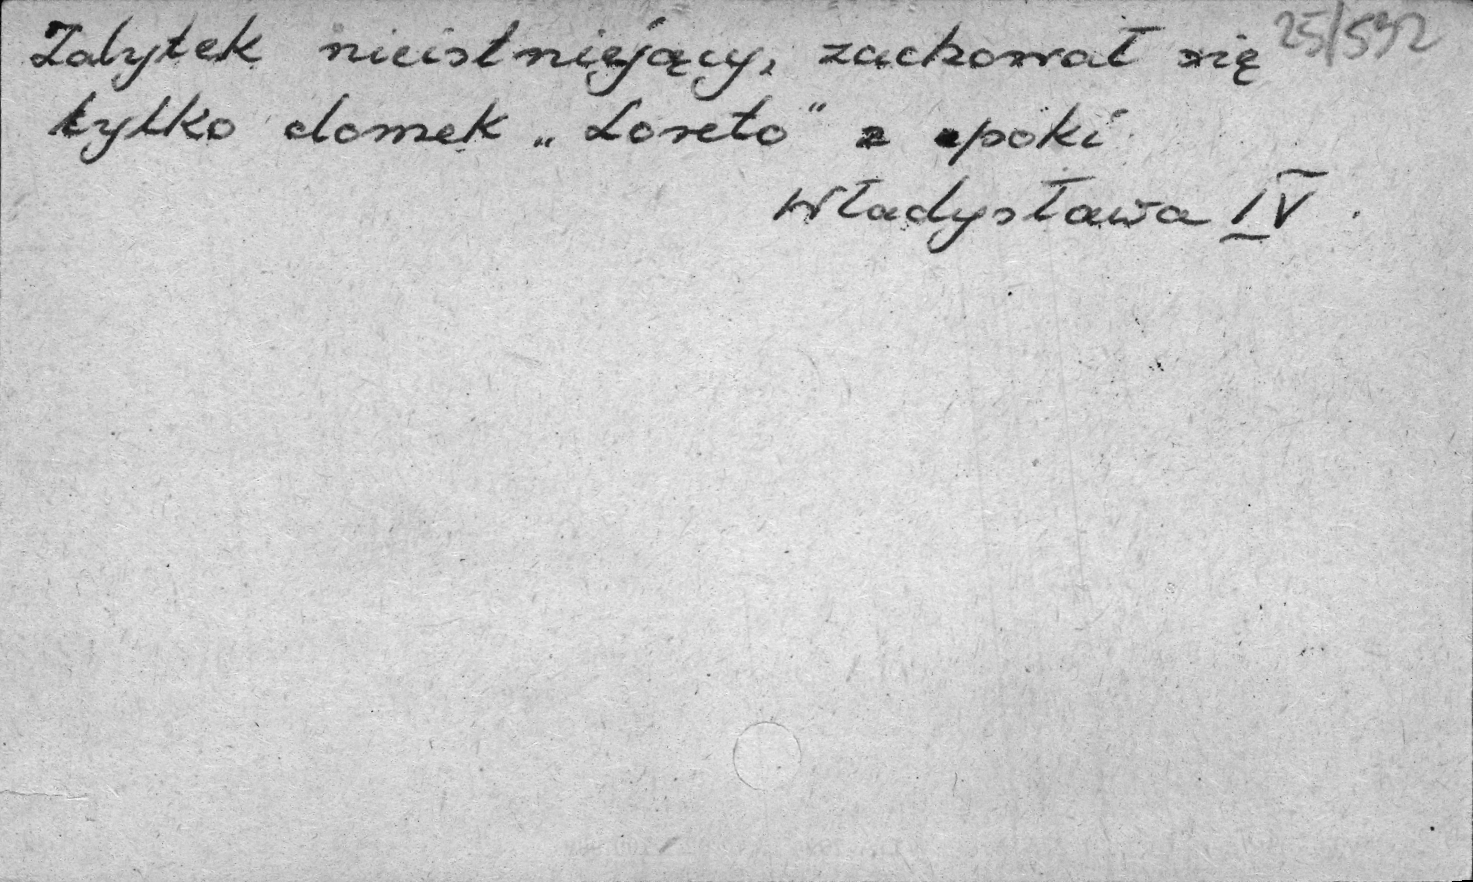 Zabytek nieistniejący, zachował się 25/592
tylko domek „Loreto" z epoki
Władysława IV.